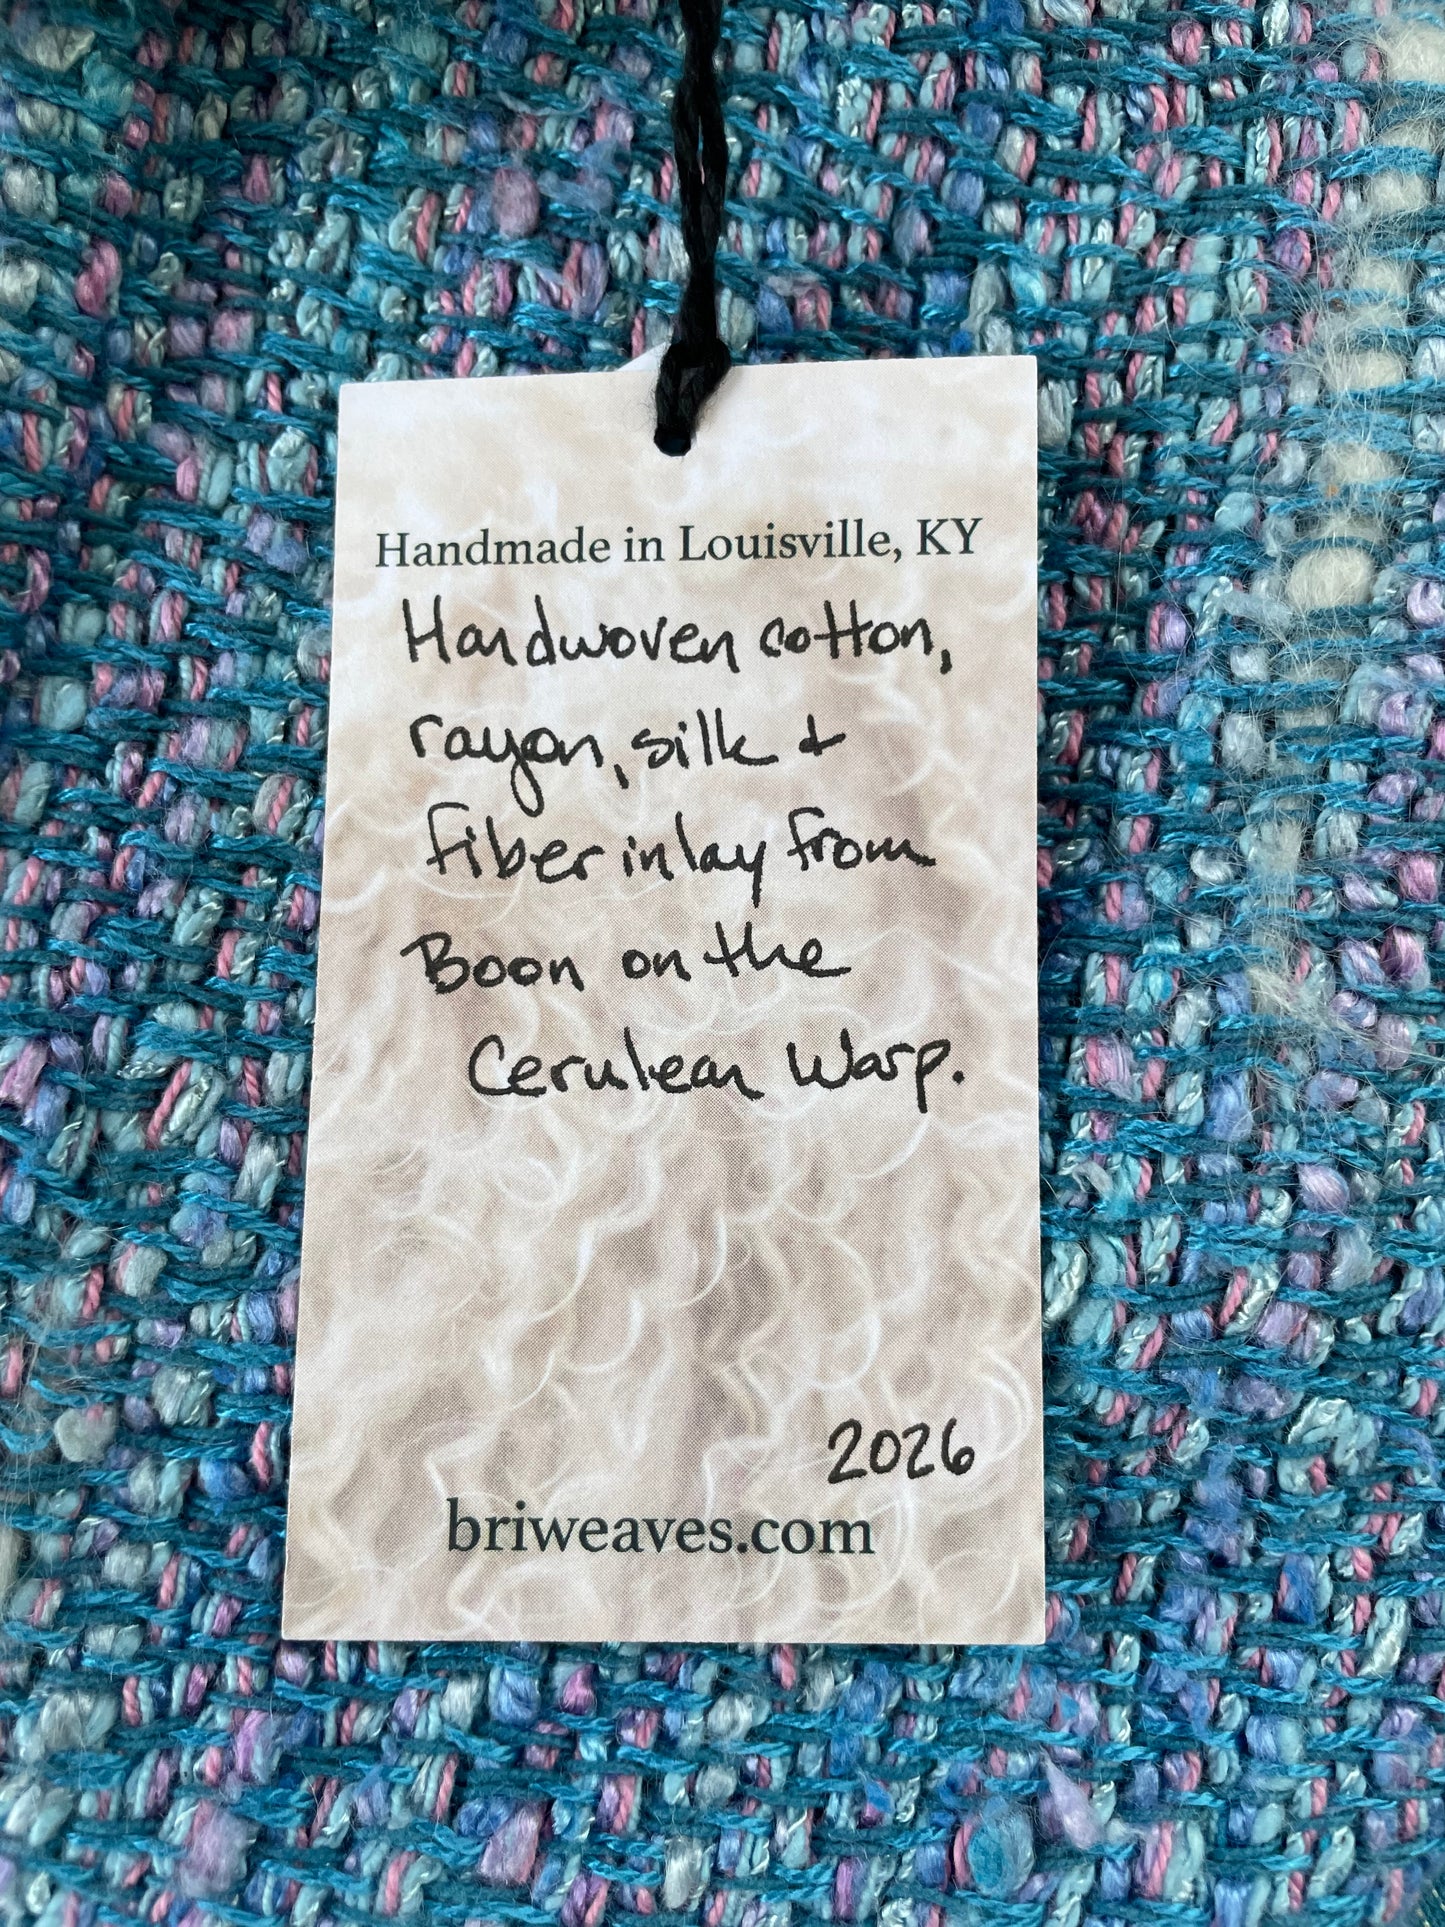 Handmade in Louisville, KY
Handwoven cotton,
rayon, silk +
fiber inlay from
Boon on the
Cerulean Warp.
2026
briweaves.com